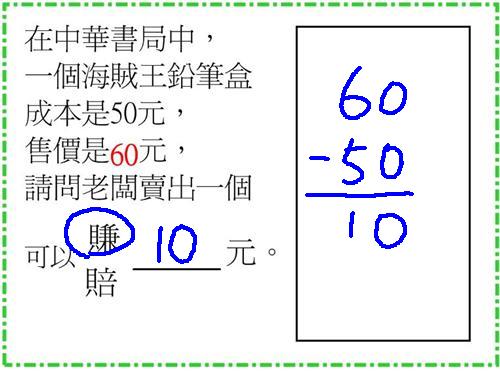 在中華書局中，
一個海賊王鉛筆盒
成本是50元，
售價是60元，
請問老闆賣出一個
可以 賺 10 元。
賠
60
-50
10